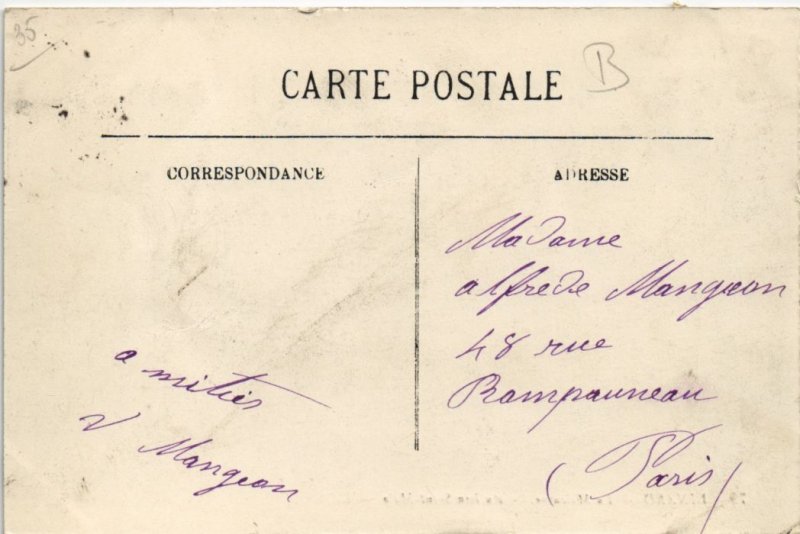 35
B
CARTE POSTALE
CORRESPONDANCE
ADRESSE
Madame
alfrede Mangeon
48 rue
Rampauneau
(Paris)
amitiés
V Mangeon